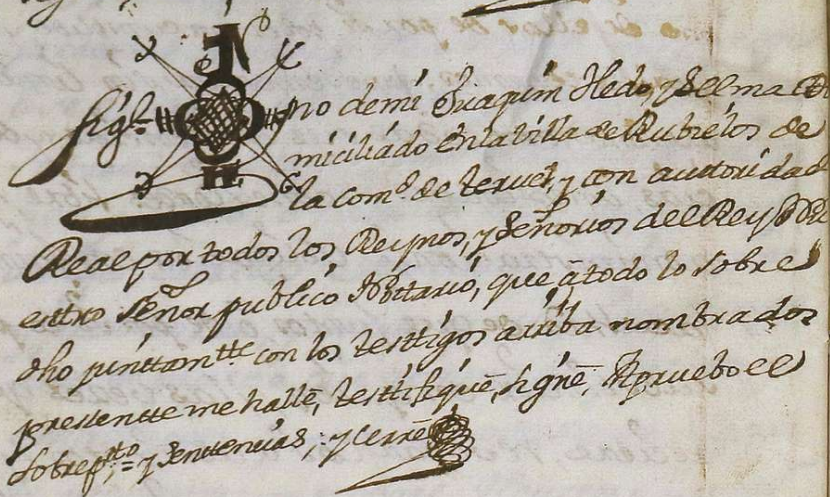 Sig- no de mi Juaquim Hedo, y Selma Do
miciliado en la billa de Rubielos de
la com.d de teruel, y con auttoridad
Real por todos los Reynos, y Señorios del Rey
esttro Señor publico Nottario, que â todo lo sobre
dho junttam.tte con los testtigos arriba nombrados
presentte me hallê, testtifiquê, signê, Apruebo el
sobrep.tto = y senttencias; y cerrê